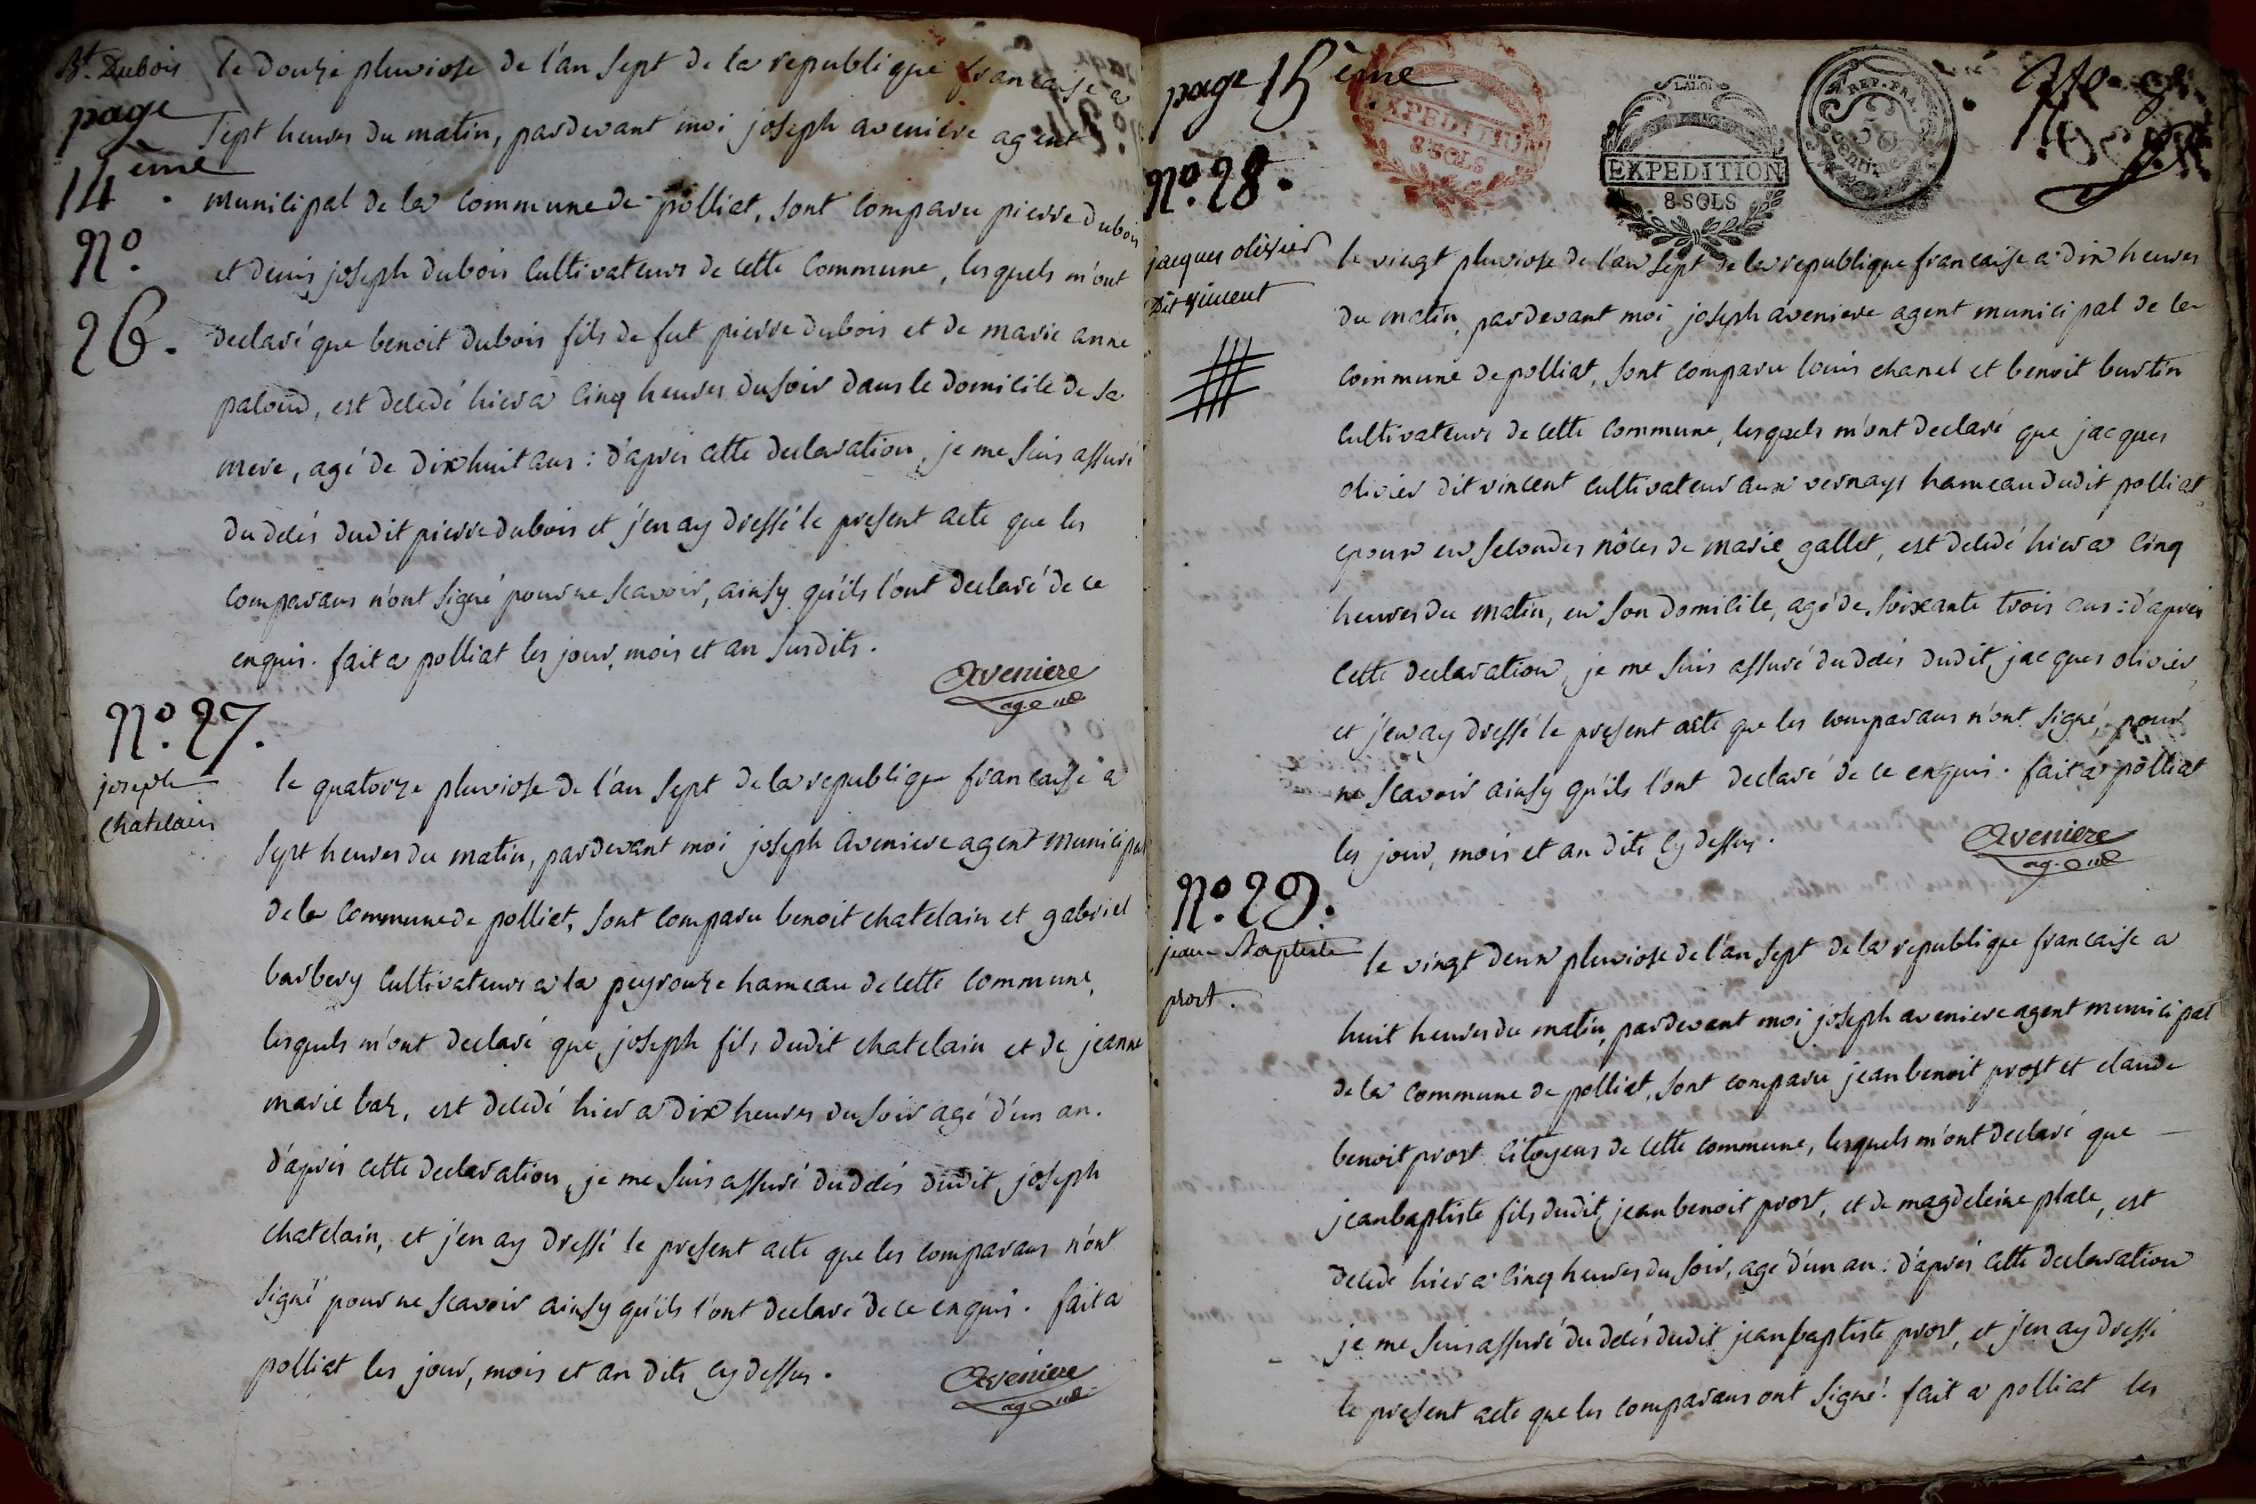 Bt. Dubois
page
14ème.
No.
26.
le douze pluviose de l'an sept de la republique francaise a
sept heures du matin, pardevant moi joseph aveniere agent
municipal de la commune de polliat, sont comparu pierre dubois
et denis joseph dubois cultivateurs de cette commune, lesquels m'ont
declaré que benoit dubois fils de fut pierre dubois et de marie anne
paloud, est decedé hier a cinq heures du soir dans le domicile de sa
mere, agé de dix huit ans : d'apres cette declaration, je me suis assuré
du décés dudit pierre dubois et j'en ay dressé le present acte que les
comparans n'ont signé pour ne scavoir, ainsy qu'ils l'ont declaré de ce
enquis. fait a polliat les jour, mois et an susdits.
Aveniere
ag.
No. 27.
joseph
chatelain
le quatorze pluviose de l'an sept de la republique francaise a
sept heures du matin, pardevant moi joseph aveniere agent municipal
de la commune de polliat, sont comparu benoit chatelain et gabriel
barbery cultivateurs a la peyrouze hameau de cette commune,
lesquels m'ont declaré que joseph fils dudit chatelain et de jeanne
marie baz, est decedé hier a dix heures du soir agé d'un an.
d'aprés cette declaration, je me suis assuré du décés dudit joseph
chatelain, et j'en ay dressé le present acte que les comparans n'ont
signé pour ne scavoir ainsy qu'ils l'ont declaré de ce enquis. fait a
polliat les jour, mois et an dits cy dessus.
Aveniere
ag.
page 15ème
EXPEDITION
8 SOLS
LA LOI
EXPEDITION
8 SOLS
REP. FRA.
50
centimes
No. 28.
jacques olivier
dit vincent
le vingt pluviose de l'an sept de la republique francaise a dix heures
du matin, pardevant moi joseph aveniere agent municipal de la
commune de polliat, sont comparu louis chanel et benoit burtin
cultivateurs de cette commune, lesquels m'ont declaré que jacques
olivier dit vincent cultivateur aux vernays hameau dudit polliat
epoux en secondes nôces de marie gallet, est decedé hier a cinq
heures du matin, en son domicile, agé de soixante trois ans : d'apres
cette declaration, je me suis assuré du décés dudit jacques olivier,
et j'en ay dressé le present acte que les comparans n'ont signé, pour
ne scavoir ainsy qu'ils l'ont declaré de ce enquis. fait a polliat
les jour, mois et an dits cy dessus.
Aveniere
ag.
No. 29.
jean-Baptiste
prost.
le vingt deux pluviose de l'an sept de la republique francaise a
huit heures du matin, pardevant moi joseph aveniere agent municipal
de la commune de polliat, sont comparu jean benoit prost et claude
benoit prost citoyens de cette commune, lesquels m'ont declaré que
jeanbaptiste fils dudit jean benoit prost, et de magdeleine place, est
decedé hier a cinq heures du soir, agé d'un an : d'aprés cette declaration
je me suis assuré du décés dudit jean baptiste prost, et j'en ay dressé
le present acte que les comparans ont signé. fait a polliat les